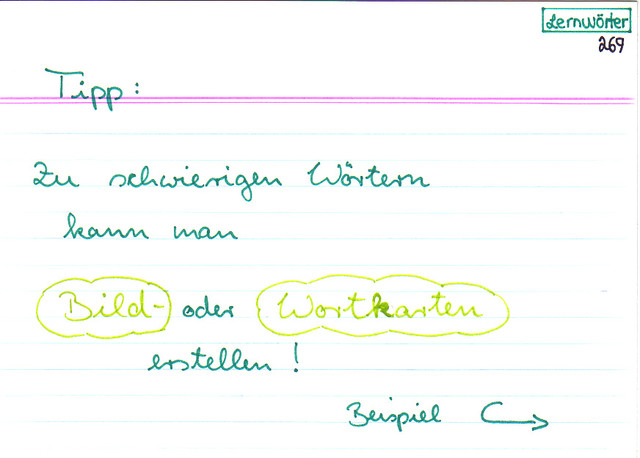 Lernwörter
269
Tipp:
Zu schwierigen Wörtern
kann man
Bild- oder Wortkarten
erstellen!
Beispiel